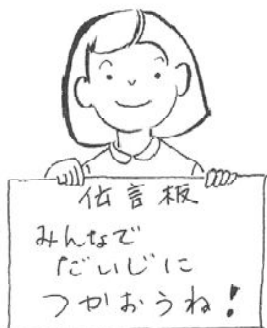 伝言板
みんなで
だいじに
つかおうね!